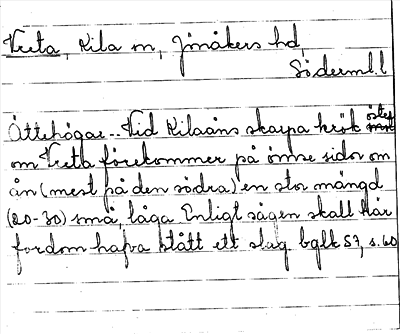 Vreta, Kila sn, Jönåkers hd,
Söderml. l
Ättehögar.- Vid Kilaåns skarpa krök öster
om Vreta förekommer på ömse sidor om
ån (mest på den södra) en stor mängd
(20-30) små, låga Enligt sägen skall här
fordom hafva stått ett slag bglk 57, s. 60